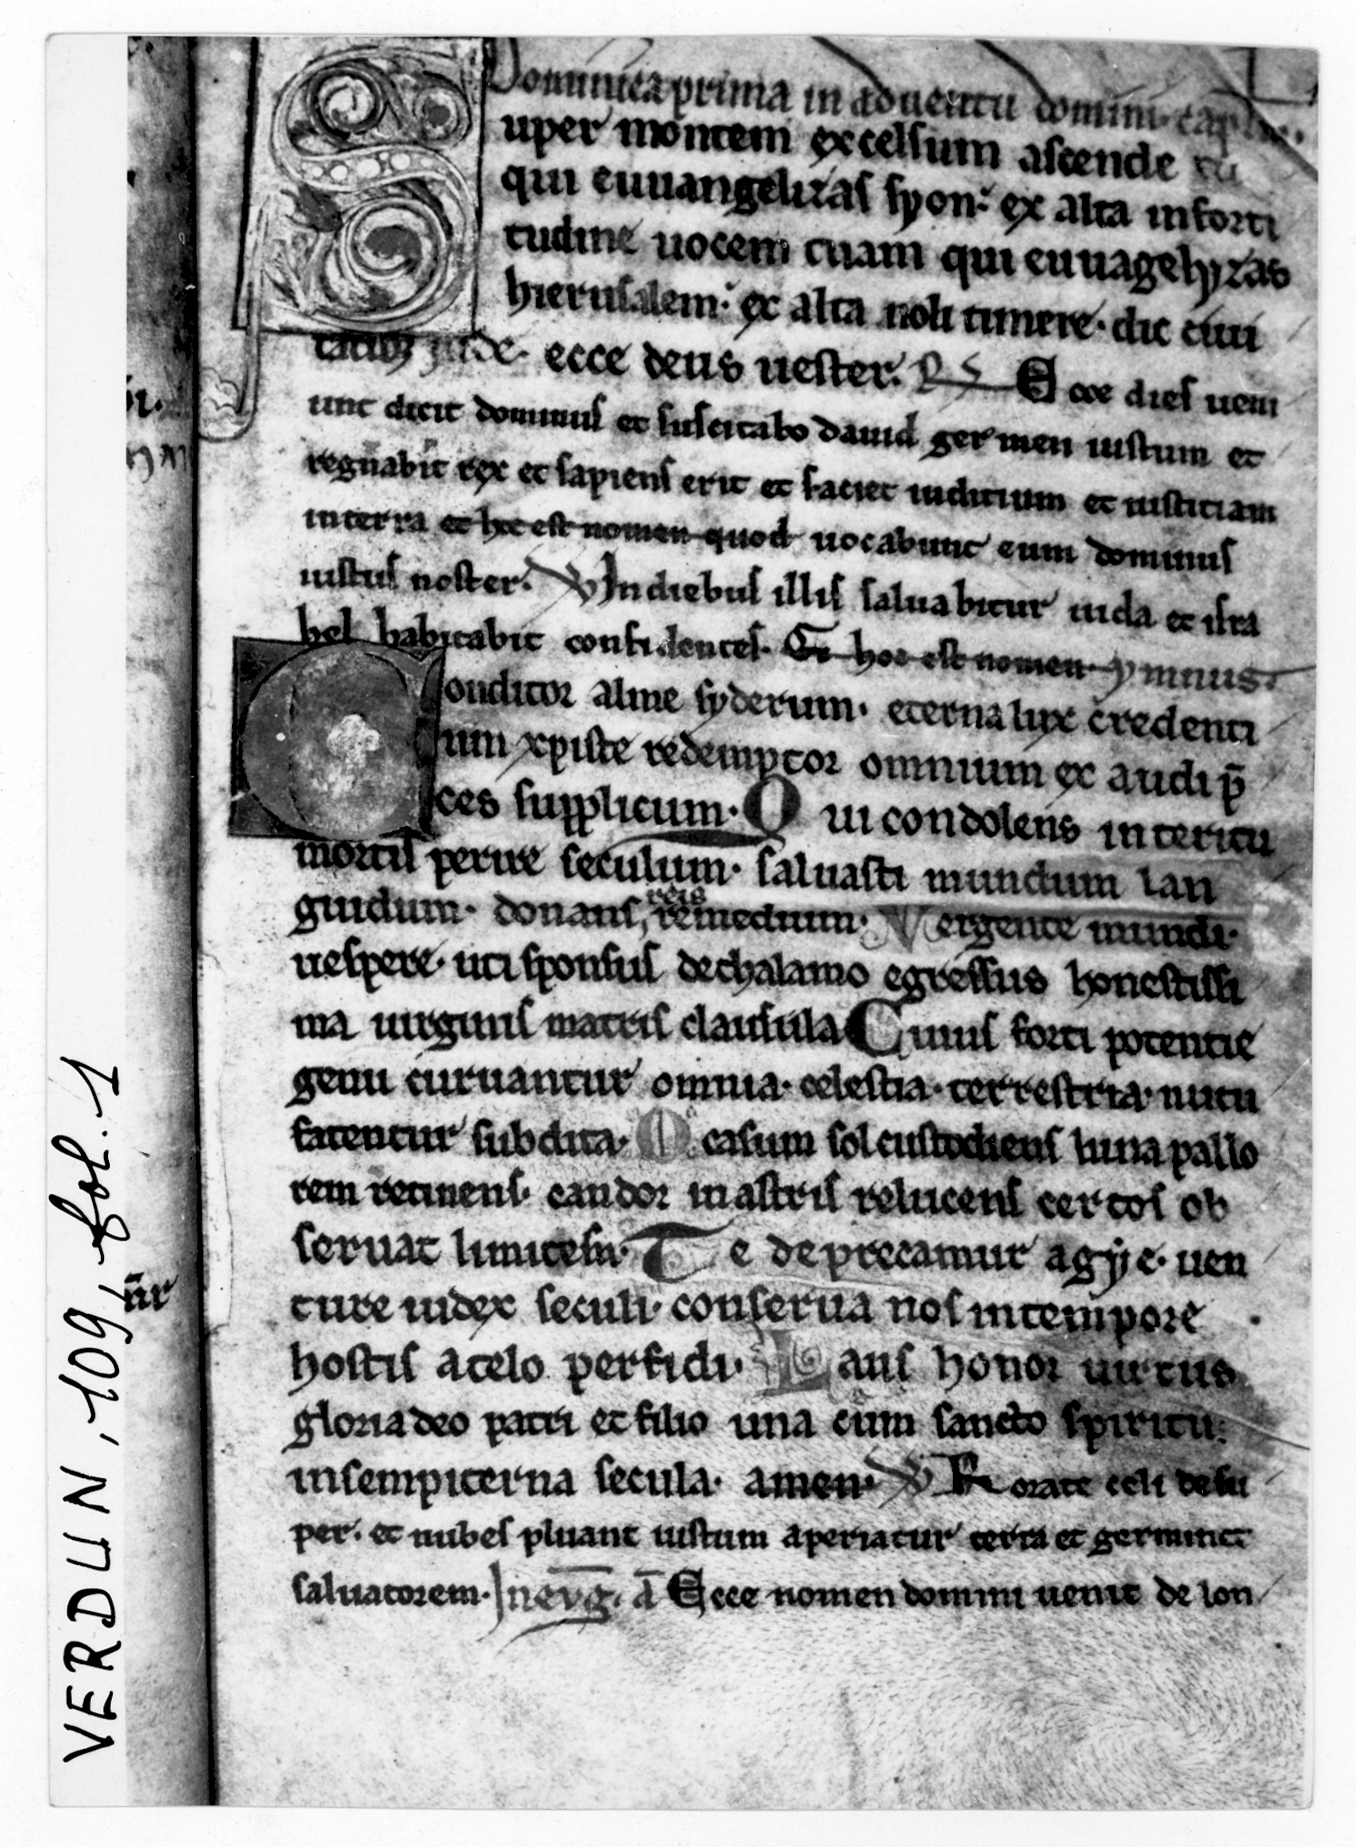 Dominica prima in aduentu domini cap
Super montem excelsum ascende tu
qui euuangelizas syon: ex alta in forti
tudine uocem tuam qui euuagelyzas
hierusalem: ex alta noli timere· dic ciui
tatibus iude· ecce deus uester. R Ecce dies ueni
unt dicit dominus et suscitabo dauid germen iustum et
regnabit rex et sapiens erit et faciet iudicium et iusticiam
in terra et hoc est nomen quod uocabunt eum dominus
iustus noster. V In diebus illis saluabitur iuda et isra
hel habitabit confidenter· Et hoc est nomen ymnus.
Conditor alme syderum· eterna lux credenti
um xpiste redemptor omnium exaudi p̄
ces supplicum· Qui condolens interitu
mortis perire seculum· saluasti mundum lan
guidum· donans, reis remedium· Vergente mundi·
uespere· uti sponsus de thalamo egressus honestissi
ma uirginis matris clausula Cuius forti potentie
genu curuantur omnia· celestia· terrestria· nutu
fatentur subdita· Ocasum sol custodiens luna pallo
rem retinens· candor in astris relucens certos ob
seruat limites. Te deprecamur agye· uen
ture iudex seculi· conserua nos in tempore
hostis a telo perfidi· Laus honor uirtus
gloria deo patri et filio una cum sancto spiritu:
in sempiterna secula· amen· V Rorate celi desu
per· et nubes pluant iustum aperiatur terra et germinet
saluatorem· In euḡ. ā Ecce nomen domini uenit de lon
VERDUN, 109, fol. 1